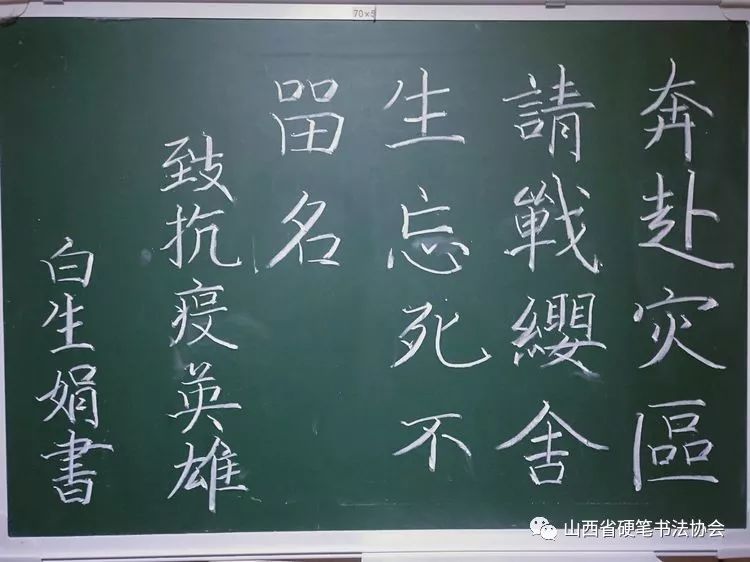 奔赴灾區
請戰纓舍
生忘死不
畱名
致抗疫英雄
白生娟書
70×5
山西省硬笔书法协会